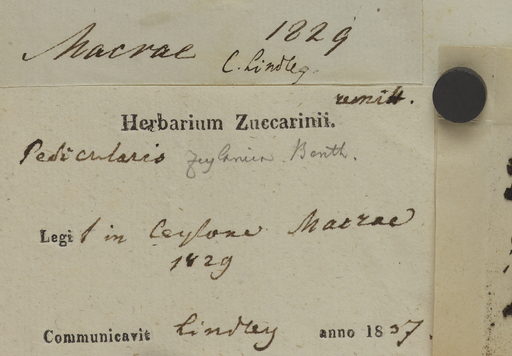 Macrae 1829
C. Lindley.
remitt.
Herbarium Zuccarinii.
Pedicularis zeylanica Benth.
Legit in Ceylone Macrae
1829
Communicavit Lindley anno 1837